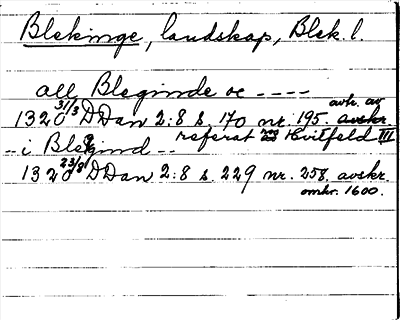 Blekinge, landskap, Blek. l.
all Bleginde oc ----
1320 31/3 DDan 2:8 s. 170 nr. 195. avskr. av
referat hos Hvitfeld III
-- i Blegind --
1320 23/8 DDan 2:8 s. 229 nr. 258. avskr.
omkr. 1600.